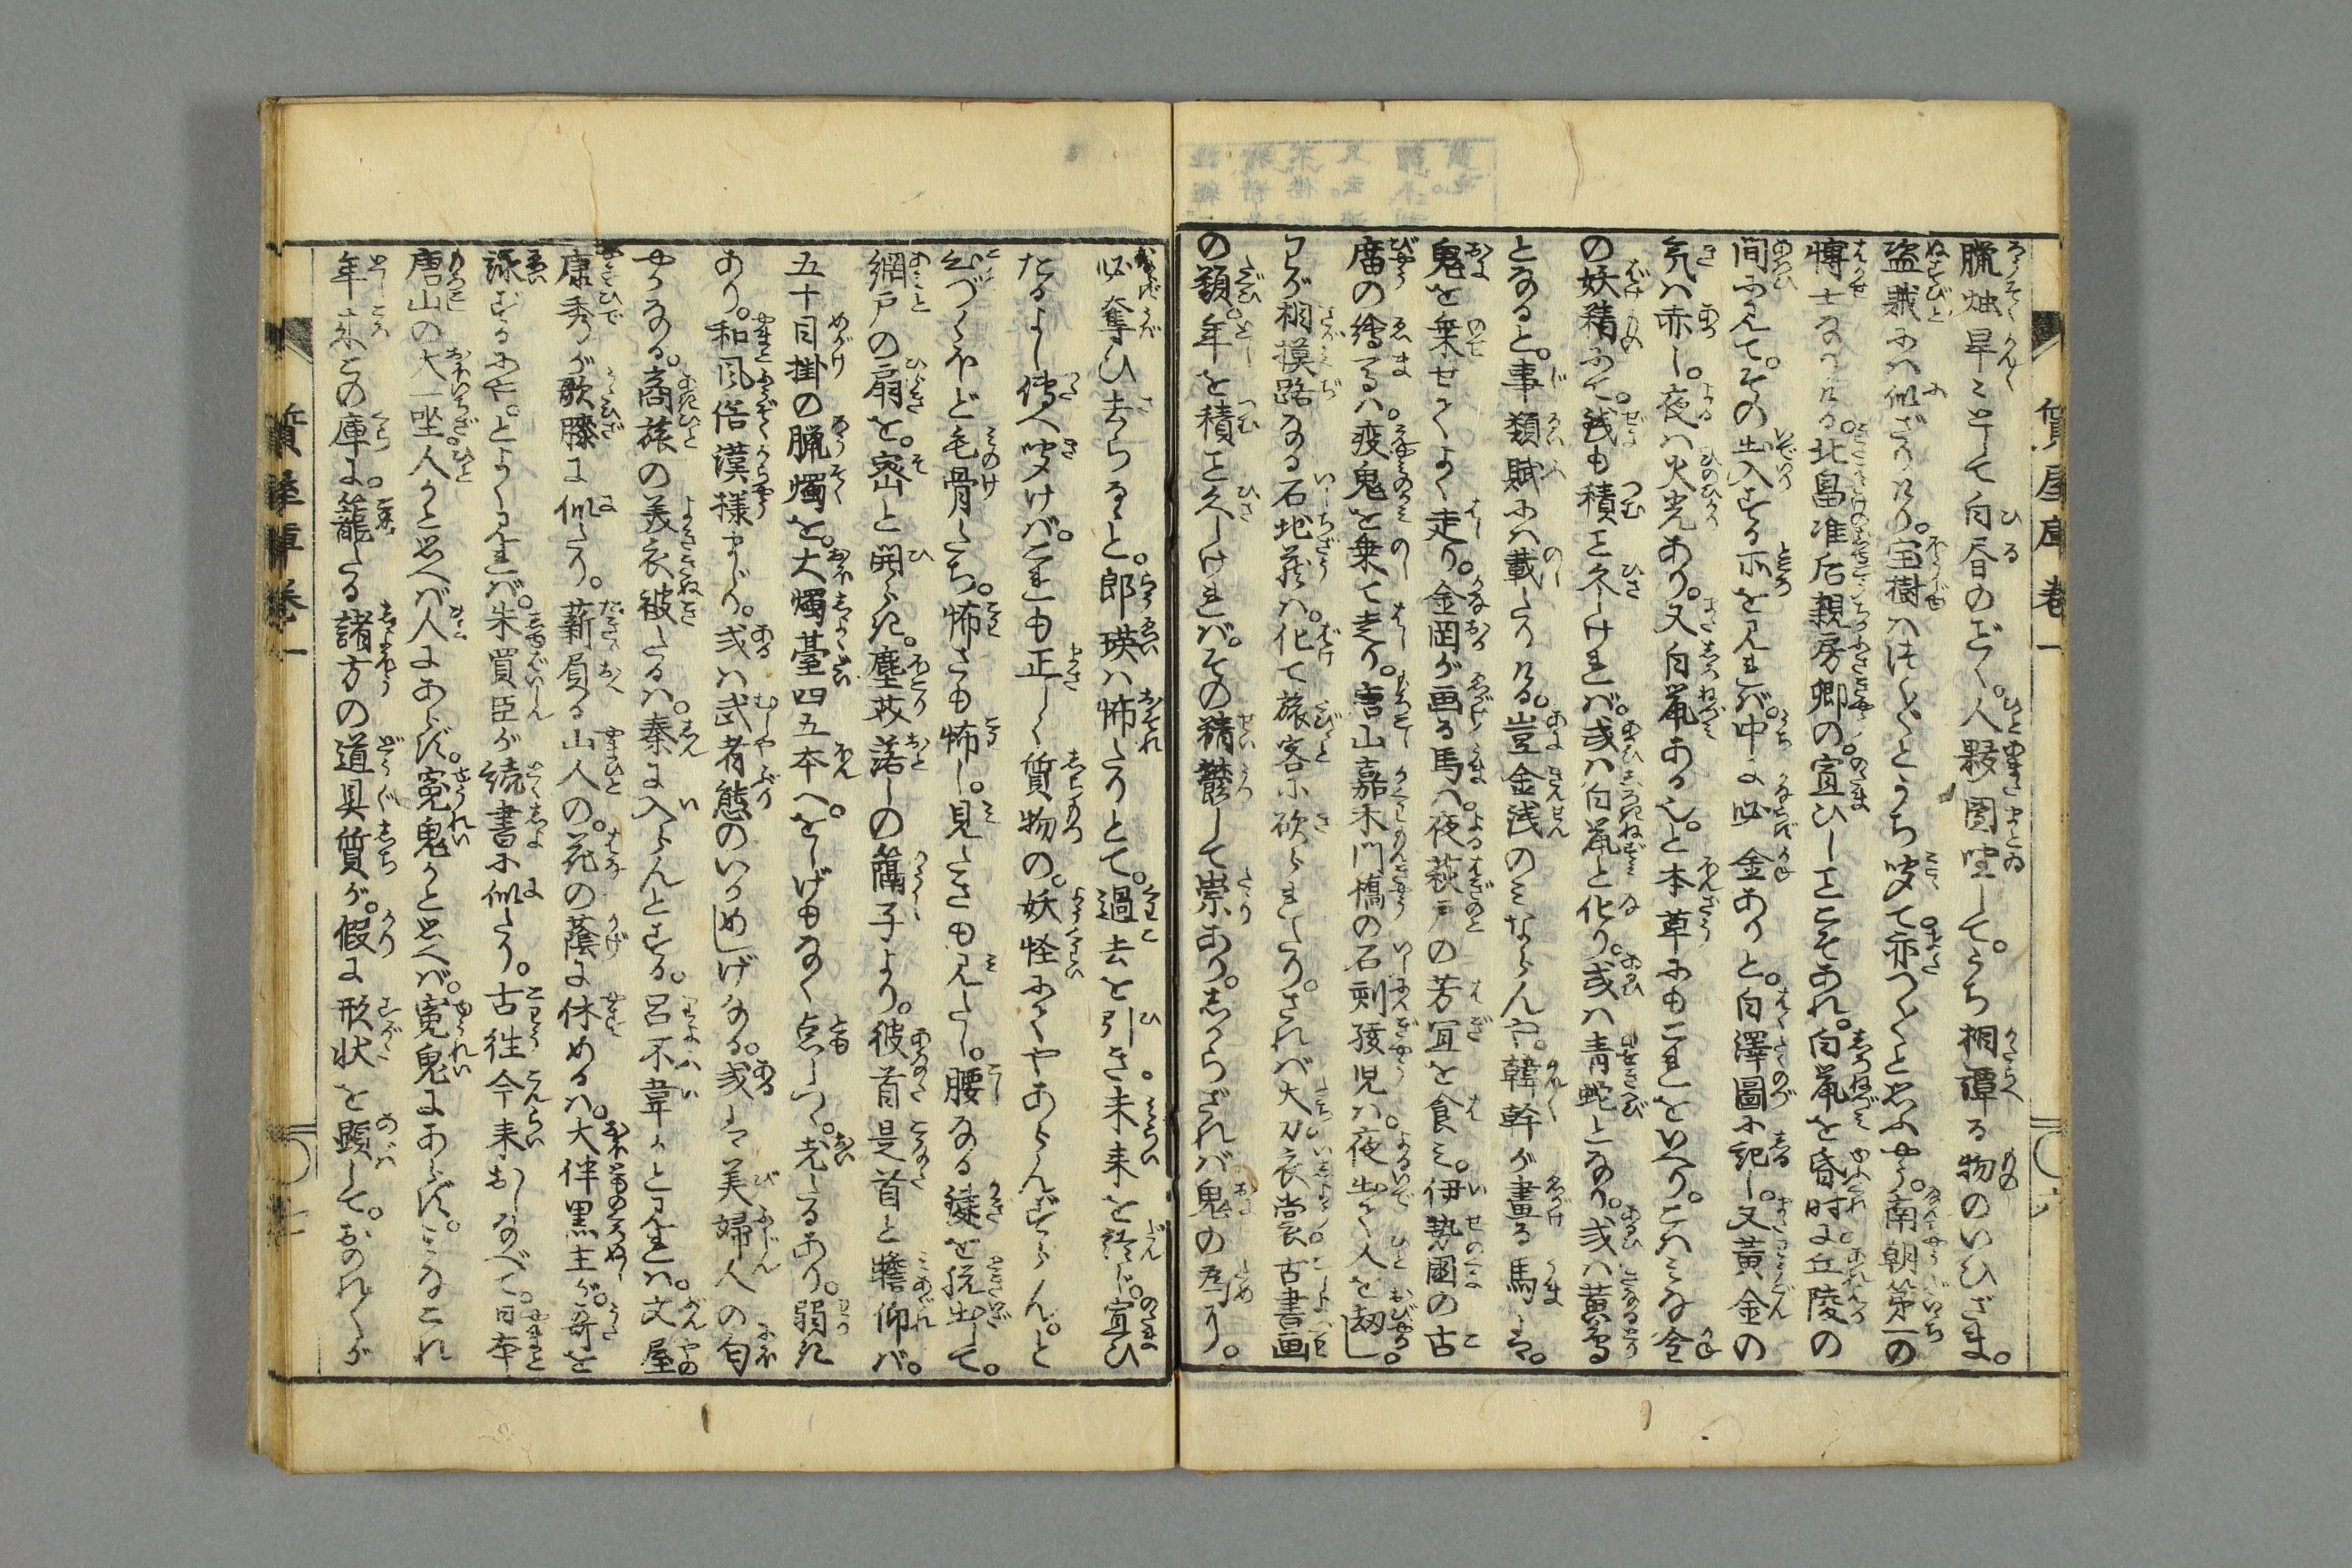 質屋庫巻一
臘燭早々として白昼のごとく。人夥團坐して。うち相譚る物のいひざま。
盗賊にハ似ざりけり。宝樹ハつく〴〵とうち聞て亦つく〴〵と思ふやう。南朝第一の
博士なりける。北畠准后親房卿の。宣ひしことこそあれ。白鼠を昏時に丘陵の
間にみて。その出入する所を見れバ。中に必金ありと。白澤圖に記し。又黄金の
気ハ赤し。夜ハ火光あり。又白鼠ある也。と本草にもこれをいへり。こハみな金
の妖精にて。銭も積こと久しけれバ。或ハ白鼠と化り。或ハ青蛇となり。或ハ黄なる
となると。事類賦にハ載たりける。豈金浅のミならんや。韓幹が畫る馬ハ。
鬼を乗せてよく走り。金岡が画る馬ハ夜萩戸の芳宜を食ミ。伊勢國の古
庿の繪馬ハ。疫鬼を乗て走り。唐山嘉木門橋の石刻孩児ハ。夜出て人を劫し。
わが相摸路なる石地蔵ハ。化て旅客に砍られたり。されバ大刀衣裳古書画
の類。年を積こと久しけれバ。その精欝して崇あり。しからざれバ鬼の為に。
必奪ひ去らると。郎瑛ハ怖たりとて。過去を引き未来を終ぶ。宣ひ
たるよし傳へ聞けバ。これも正しく質物の。妖怪にてやあらんずらん。と
心づくほど毛骨たち。怖さも怖し。見たさも見たし。腰なる鍵を脱出して。
網戸の扇を。密と開らき。塵芥落しの篱子より。彼首是首と瞻仰バ。
五十目掛の臘燭を。大燭臺四五本へ。をしげもなく点しつ。老たるあり。弱き
あり。和風俗漢様まじり。或ハ武者態のいかめしげなる。或ハ美婦人の匂
やかなる。商旅の美衣被たるハ。秦に入らんとする。呂不韋かと見れバ。文屋
康秀が歌膝に似たり。薪屓る山人の。花の蔭に休めるハ。大伴黒主が。哥を
詠ずるにや。とよく見れバ。朱買臣が続書に似たり。古往今来おしなべて。日本
唐山の大一坐。人かと思へバ人にあらず。寃鬼かと思へバ。寃鬼にあらず。ミなこれ
年来この庫に。籠たる諸方の道具質が。假に形状を顕して。おのれ〳〵が
質屋庫巻一